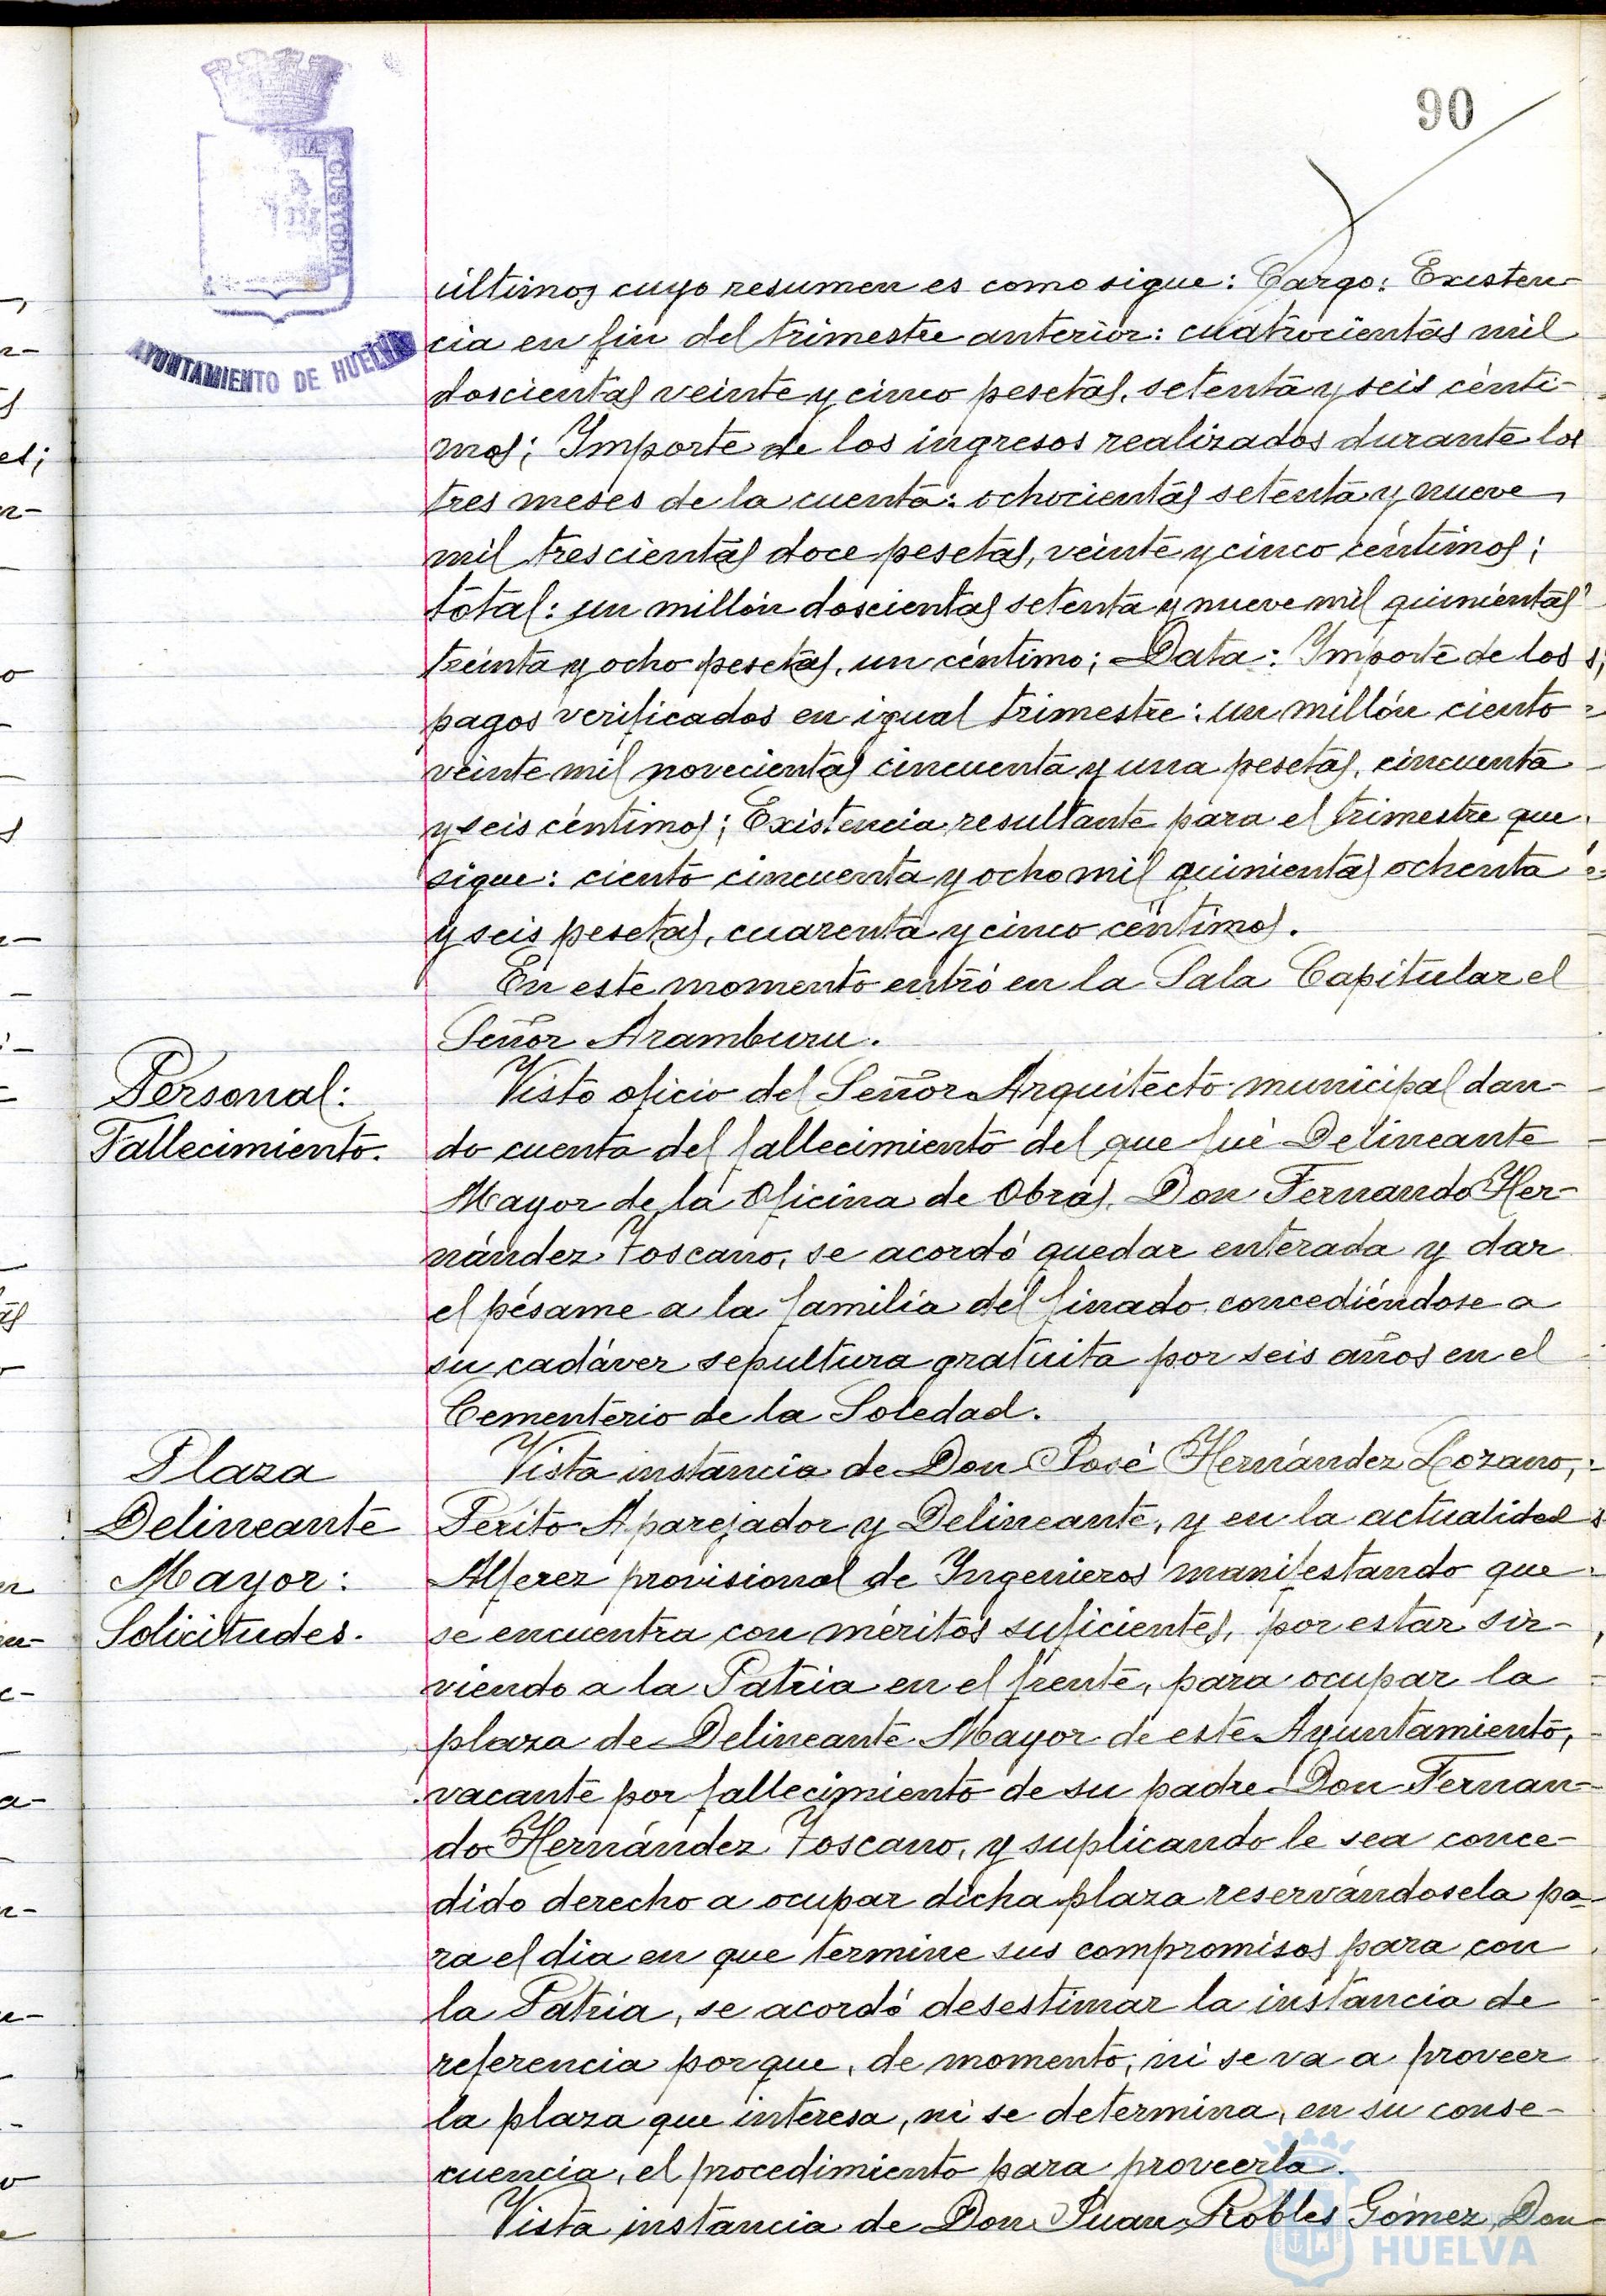 90
CUSTODIA
AYUNTAMIENTO DE HUELVA
últimos cuyo resumen es como sigue: Cargo: Existen-
cia en fin del trimestre anterior: cuatrocientas mil
doscientas veinte y cinco pesetas, setenta y seis cénti-
mos; Importe de los ingresos realizados durante los
tres meses de la cuenta: ochocientas setenta y nueve
mil trescientas doce pesetas, veinte y cinco céntimos;
total: un millón doscientas setenta y nueve mil quinientas
treinta y ocho pesetas, un céntimo; Data: Importe de los
pagos verificados en igual trimestre: un millón ciento
veinte mil novecientas cincuenta y una pesetas, cincuenta
y seis céntimos; Existencia resultante para el trimestre que
sigue: ciento cincuenta y ocho mil quinientas ochenta
y seis pesetas, cuarenta y cinco céntimos.
En este momento entró en la Sala Capitular el
Señor Aramburu.
Personal:
Fallecimiento.
Visto oficio del Señor Arquitecto municipal dan-
do cuenta del fallecimiento del que fué Delineante
Mayor de la Oficina de Obras, Don Fernando Her-
nández Toscano, se acordó quedar enterada y dar
el pésame a la familia del finado concediéndose a
su cadáver sepultura gratuita por seis años en el
Cementerio de la Soledad.
Plaza
Delineante
Mayor:
Solicitudes.
Vista instancia de Don José Hernández Lozano,
Perito Aparejador y Delineante, y en la actualidad
Alferez provisional de Ingenieros manifestando que
se encuentra con méritos suficientes, por estar sir-
viendo a la Patria en el frente, para ocupar la
plaza de Delineante Mayor de este Ayuntamiento,
vacante por fallecimiento de su padre Don Fernan-
do Hernández Toscano, y suplicando le sea conce-
dido derecho a ocupar dicha plaza reservándosela pa-
ra el dia en que termine sus compromisos para con
la Patria, se acordó desestimar la instancia de
referencia porque, de momento, ni se va a proveer
la plaza que interesa, ni se determina, en su conse-
cuencia, el procedimiento para proveerla.
Vista instancia de Don Juan Robles Gómez, Don
HUELVA